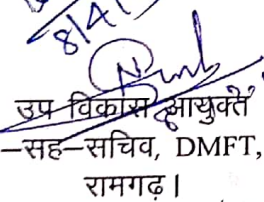 8/4/
उप विकास आयुक्त
–सह–सचिव, DMFT,
रामगढ़।